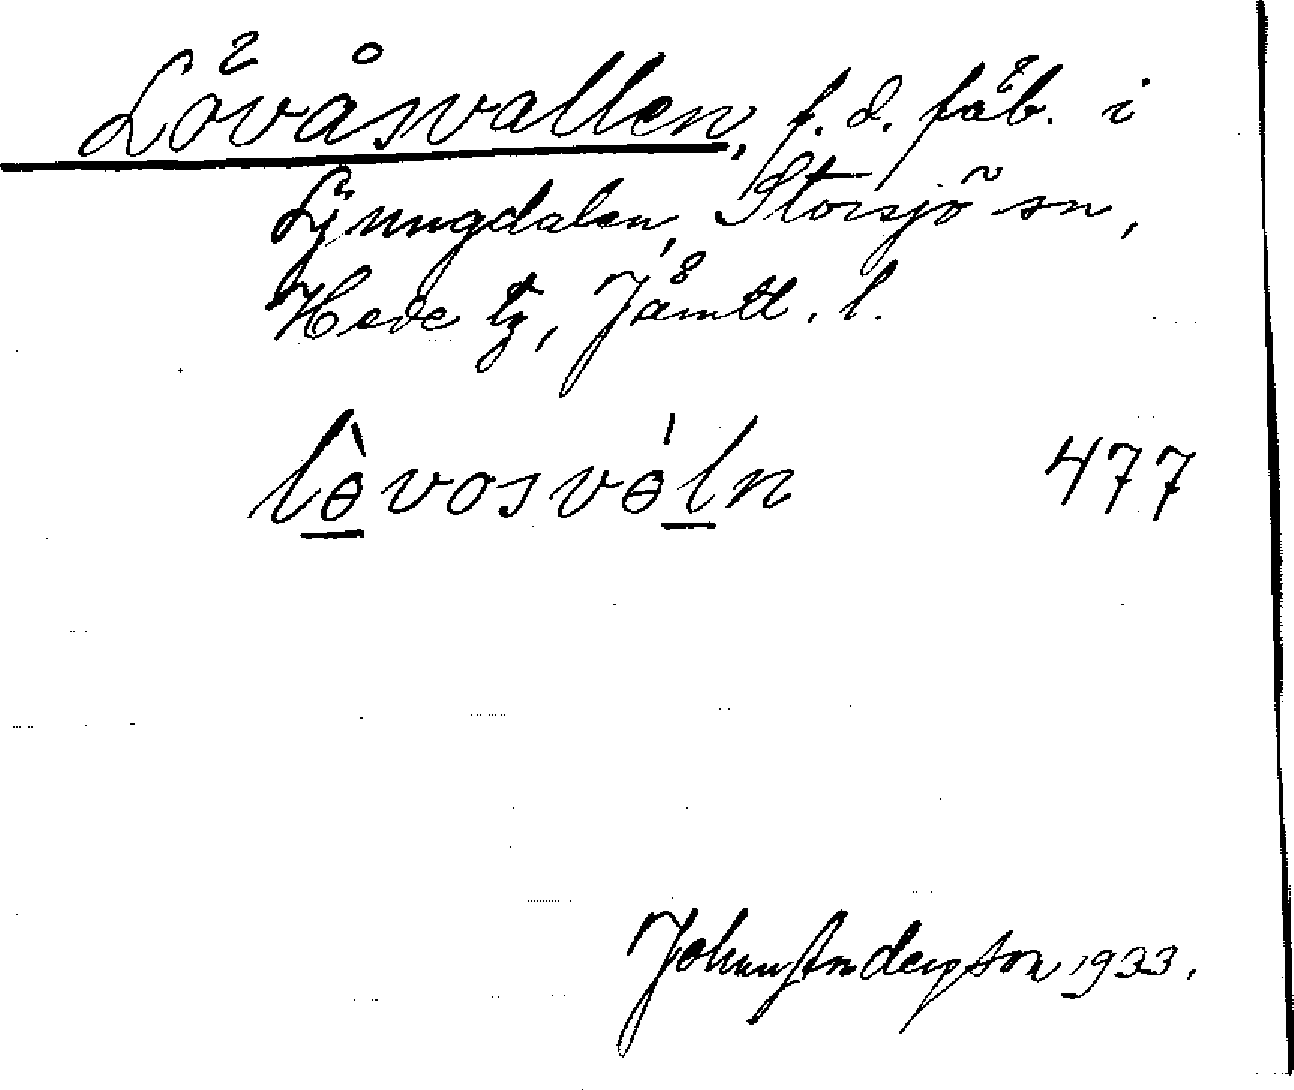 Lövåsvallen, f. d. fäb. i
Ljungdalen, Storsjö sn,
Hede tg, Jämtl. l.
lɵ̀vosvɵ́ln 477
Johan Anderson 1933.